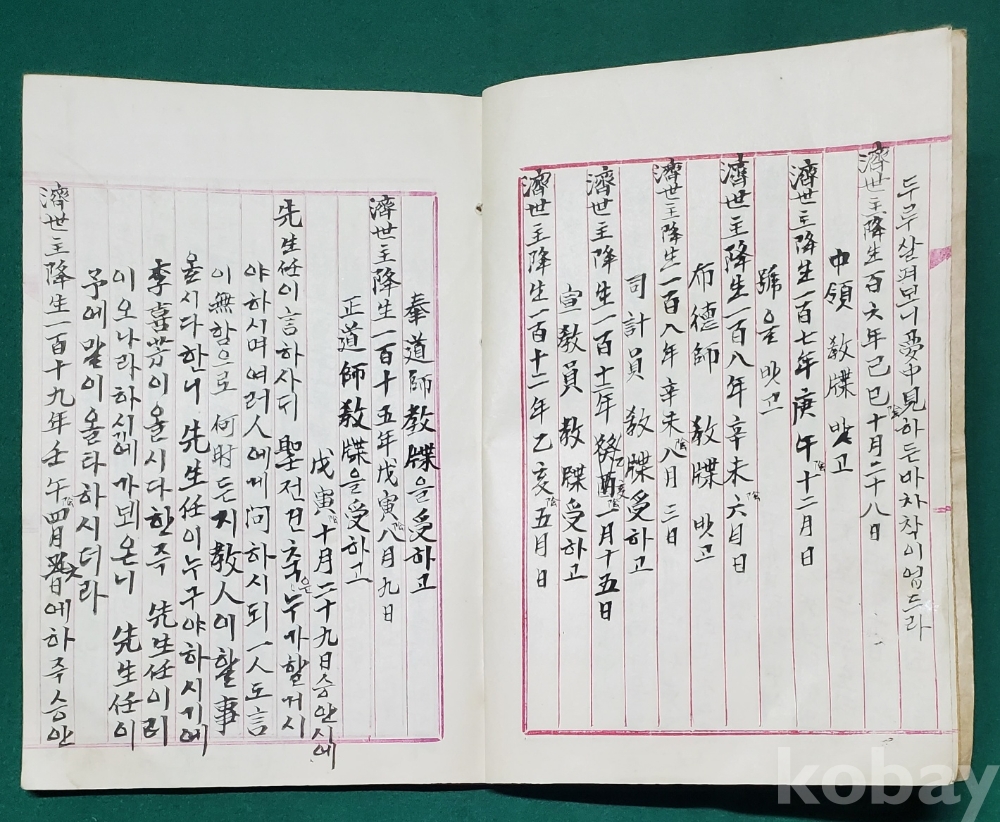 두루살펴보니夢中見하든바차착이업드라
濟世主降生百六年己巳十月二十八日
中領 敎牒 밧고
濟世主降生一百七年庚午陰十二月 日
號을 밧고
濟世主降生一百八年辛未六陰月 日
布德師 敎牒 밧고
濟世主降生一百八年辛未陰八月三日
司計員 敎牒受하고
濟世主降生一百十二年乙亥陰一月十五日
宣敎員 敎牒受하고
濟世主降生一百十二年乙亥陰五月 日
奉道師敎牒을受하고
濟世主降生一百十五年戊寅陰八月九日
正道師敎牒을受하고
戊寅陰十月二十九日승안시에
先生任이言하사디 聖전건축은누가할거시
야하시며여러人에게問하시되一人도言
이無함으로 何時든지敎人이할事
올시다한니 先生任이누구야하시기에
李喜 이올시다한즉 先生任이리
이오나라하시기에가뵈온니 先生任이
予에말이올타하시더라
濟世主降生一百十九年壬午陰四月 에하주승안
kobay